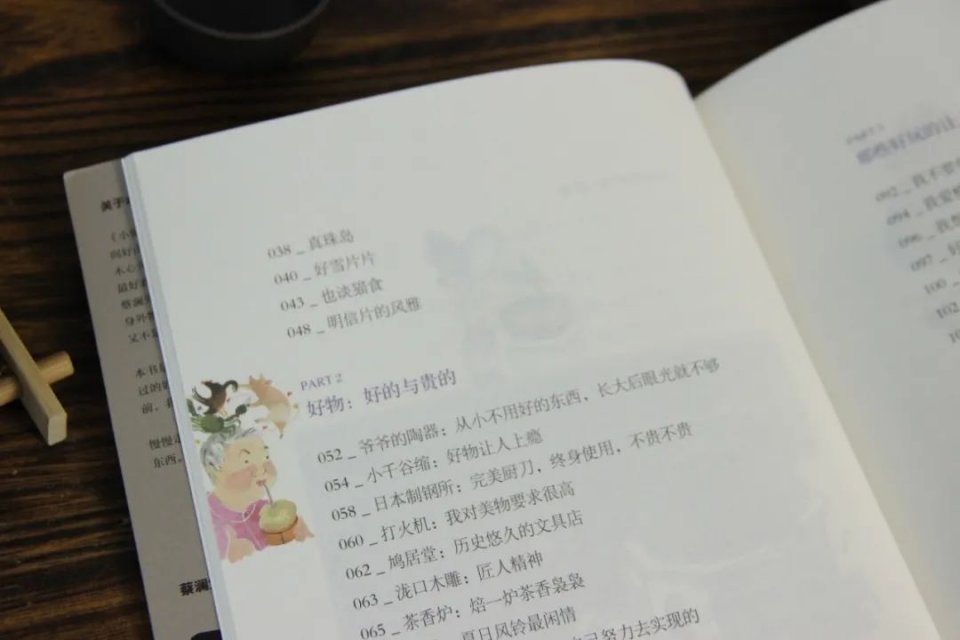 038 _ 真珠岛
040 _ 好雪片片
043 _ 也谈猫食
048 _ 明信片的风雅
PART 2
好物：好的与贵的
052 _ 爷爷的陶器：从小不用好的东西，长大后眼光就不够
054 _ 小千谷缩：好物让人上瘾
058 _ 日本制钢所：完美厨刀，终身使用，不贵不贵
060 _ 打火机：我对美物要求很高
062 _ 鸠居堂：历史悠久的文具店
063 _ 泷口木雕：匠人精神
065 _ 茶香炉：焙一炉茶香袅袅
夏日风铃最闲情
己努力去实现的
关于
本书
过的
前，
慢慢
东西。
蔡澜
PART 3
那些好玩的让
092 _ 我不
094 _ 我爱
096 _ 我
097 _ 好
100 _
102